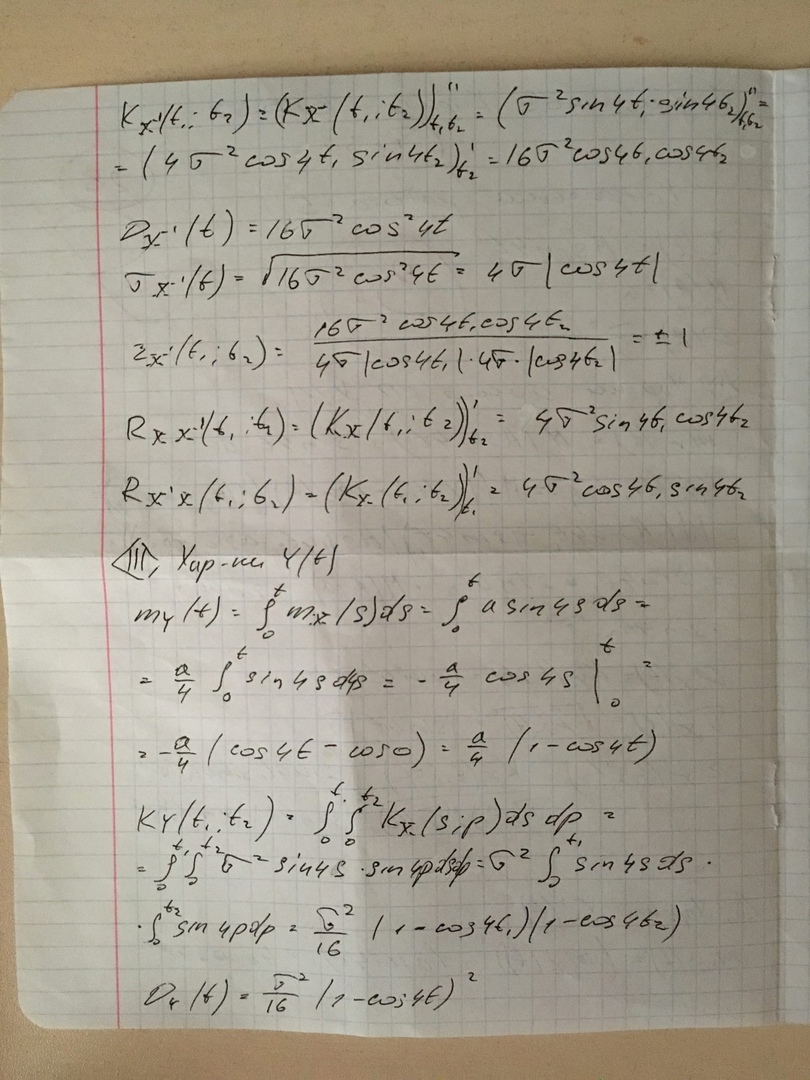 Kx'(t₁; t₂) = (Kx(t₁; t₂))''t₁t₂ = (σ² sin4t₁ · sin4t₂)''t₁t₂ =
= (4σ² cos4t₁ sin4t₂)'t₂ = 16σ² cos4t₁ cos4t₂
Dx'(t) = 16σ² cos²4t
σx'(t) = √(16σ² cos²4t) = 4σ|cos4t|
rx'(t₁; t₂) = (16σ² cos4t₁ cos4t₂)/(4σ|cos4t₁| · 4σ · |cos4t₂|) = ±1
Rxx'(t₁; t₂) = (Kx(t₁; t₂))'t₂ = 4σ² sin4t₁ cos4t₂
Rx'x(t₁; t₂) = (Kx(t₁; t₂))'t₁ = 4σ² cos4t₁ sin4t₂
III, Хар-ки Y(t)
my(t) = ∫₀ᵗ mx(s)ds = ∫₀ᵗ a sin4s ds =
= a/4 ∫₀ᵗ sin4s d4s = - a/4 cos4s |₀ᵗ =
= - a/4 (cos4t - cos0) = a/4 (1 - cos4t)
Ky(t₁; t₂) = ∫₀^t₁ ∫₀^t₂ Kx(s; p) ds dp =
= ∫₀^t₁ ∫₀^t₂ σ² sin4s · sin4p ds dp = σ² ∫₀^t₁ sin4s ds ·
· ∫₀^t₂ sin4p dp = σ²/16 (1 - cos4t₁)(1 - cos4t₂)
Dy(t) = σ²/16 (1 - cos4t)²